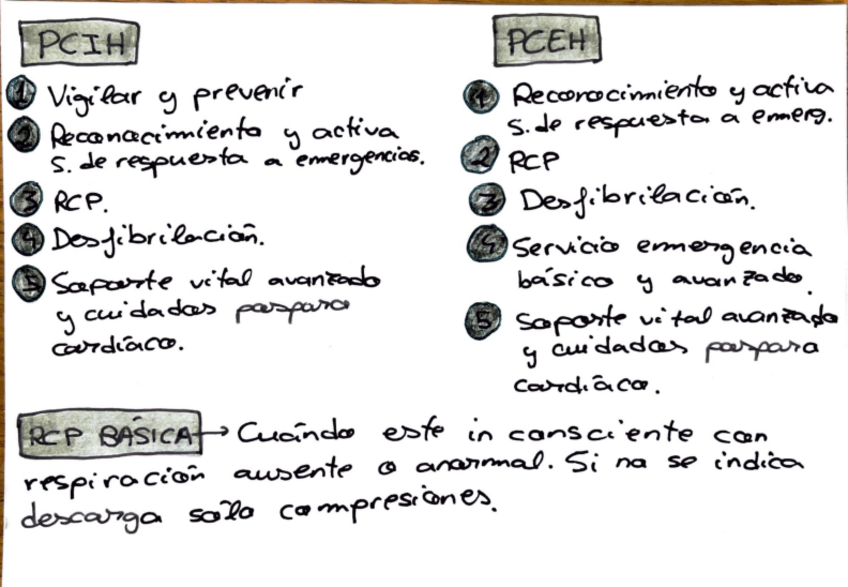 PCIH
1 Vigilar y prevenir
2 Reconocimiento y activa
S. de respuesta a emergencias.
3 RCP.
4 Desfibrilación.
5 Soporte vital avanzado
y cuidados pospara
cardíaco.
PCEH
1 Reconocimiento y activa
S. de respuesta a emerg.
2 RCP
3 Desfibrilación.
4 Servicio emergencia
básico y avanzado.
5 Soporte vital avanzado
y cuidados pospara
cardíaco.
RCP BÁSICA → Cuándo este in consciente con
respiración ausente o anormal. Si no se indica
descarga solo compresiones.